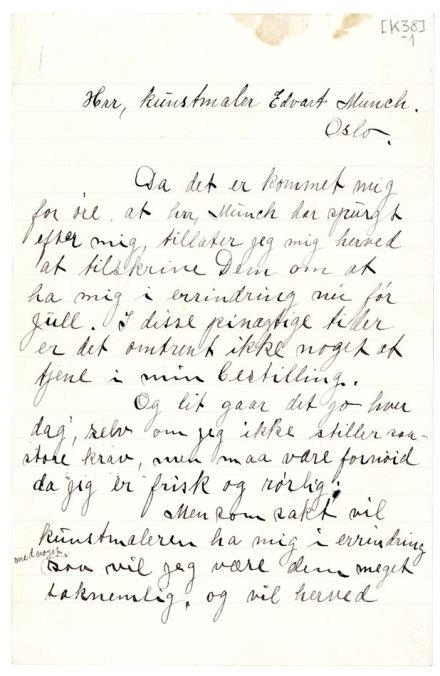 [K38]
-1
Hrr, kunstmaler Edvart Munch.
Oslo.
Da det er kommet mig
for öre, at hrr, Munch har spurgt
efter mig, tillater jeg mig herved
at tilskrive Dem om at
ha mig i errindring nu för
Jull. I disse pinagtige tider
er det omtrent ikke noget at
tjene i min bestilling.
Og lit gaar det jo hver
dag, selv om jeg ikke stiller saa
store krav, men maa være fornöid
da jig er frisk og rörlig.
Men som sakt vil
kunstmaleren ha mig i errindring
med noget.
saa vil jeg være dem meget
taknemlig, og vil herved